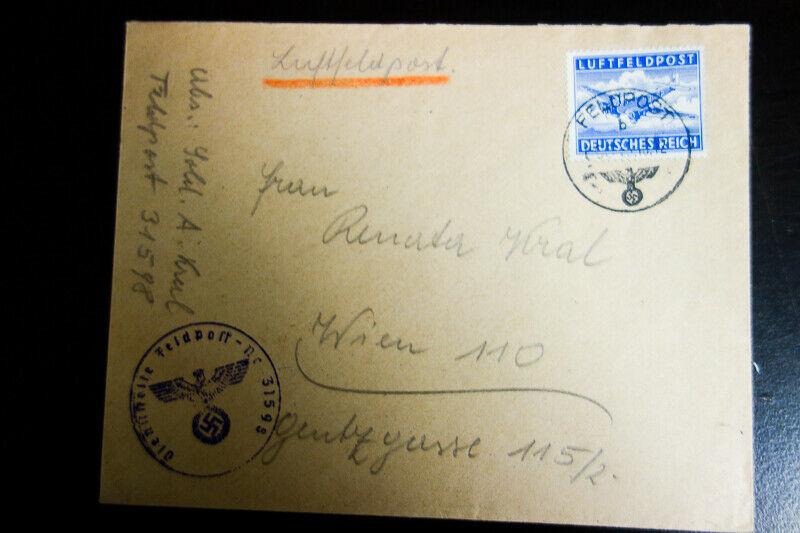 Luftfeldpost.
LUFTFELDPOST
DEUTSCHES REICH
FELDPOST
b
Abs.: Sold. A. Kral
Feldpost 31598
Frau
Renata Kral
Wien 110
Gentzgasse 115/2.
Dienststelle Feldpost-Nr. 31598